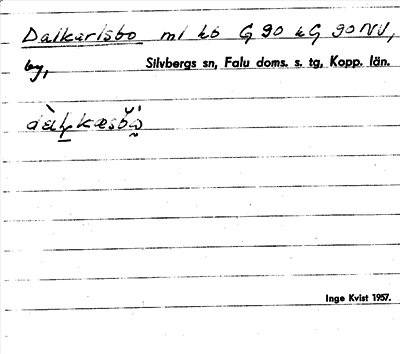 Dalkarlsbo ml bö G 90 kG 90 NV,
by, Silvbergs sn, Falu doms. s. tg, Kopp. län.
Inge Kvist 1957.